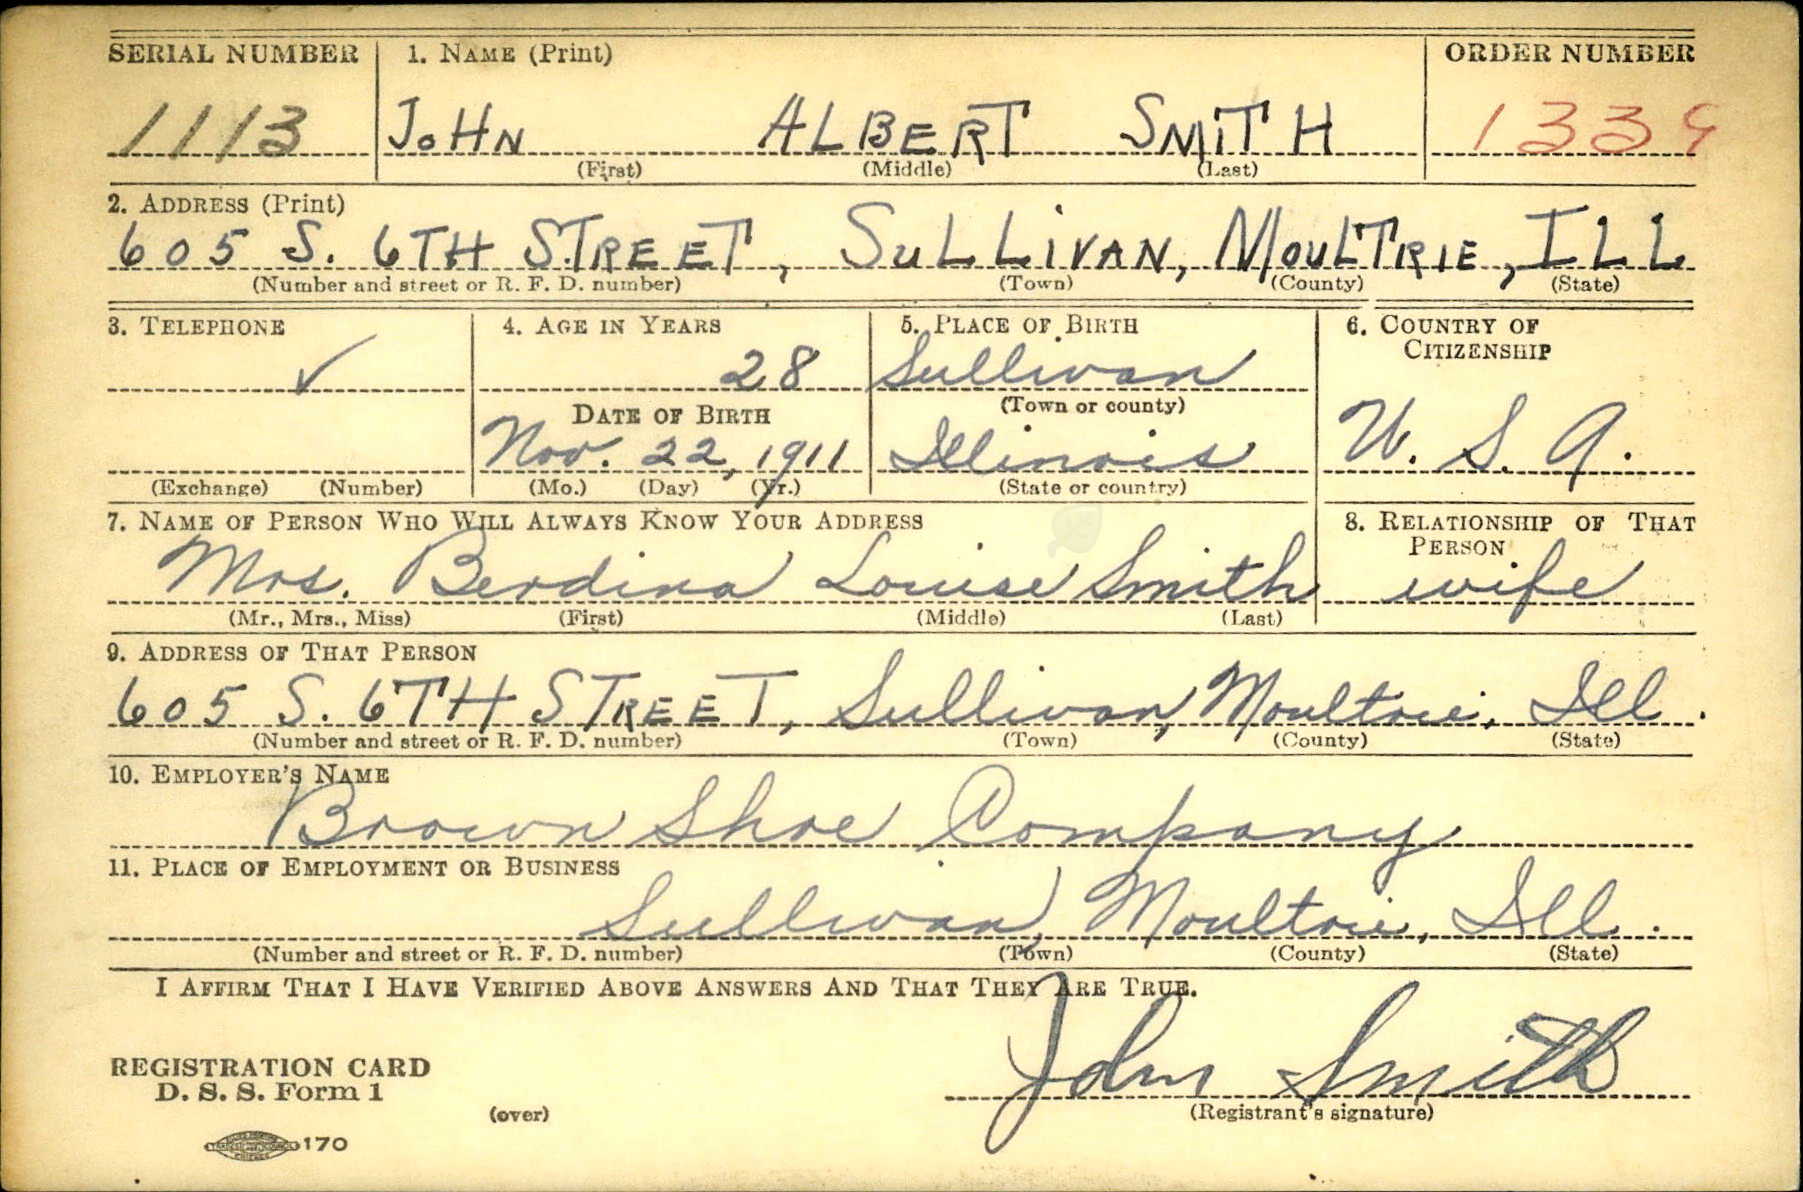 SERIAL NUMBER 1. NAME (Print) ORDER NUMBER
1113 JOHN ALBERT SMITH 1339
(First) (Middle) (Last)
2. ADDRESS (Print)
605 S. 6TH STREET, SULLIVAN, MOULTRIE, ILL
(Number and street or R. F. D. number) (Town) (County) (State)
3. TELEPHONE 4. AGE IN YEARS 5. PLACE OF BIRTH 6. COUNTRY OF CITIZENSHIP
✓ 28 Sullivan
DATE OF BIRTH (Town or county)
Nov. 22, 1911 Illinois U. S. A.
(Exchange) (Number) (Mo.) (Day) (Yr.) (State or country)
7. NAME OF PERSON WHO WILL ALWAYS KNOW YOUR ADDRESS 8. RELATIONSHIP OF THAT PERSON
Mrs. Berdina Louise Smith wife
(Mr., Mrs., Miss) (First) (Middle) (Last)
9. ADDRESS OF THAT PERSON
605 S. 6TH STREET, Sullivan, Moultrie, Ill.
(Number and street or R. F. D. number) (Town) (County) (State)
10. EMPLOYER'S NAME
Brown Shoe Company
11. PLACE OF EMPLOYMENT OR BUSINESS
Sullivan, Moultrie, Ill.
(Number and street or R. F. D. number) (Town) (County) (State)
I AFFIRM THAT I HAVE VERIFIED ABOVE ANSWERS AND THAT THEY ARE TRUE.
John Smith
REGISTRATION CARD
D. S. S. Form 1
(over) (Registrant's signature)
170